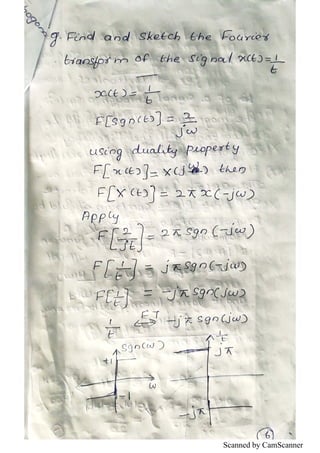 9. Find and sketch the Fourier
transform of the signal x(t)=1/t
x(t)= 1/t
F[sgn(t)] = 2/jω
using duality property
F[x(t)]= X(jω) then
F[X(t)] = 2π x(-jω)
Apply
F[2/jt] = 2π sgn(-jω)
F[1/t] = jπ sgn(-jω)
F[1/t] = -jπ sgn(jω)
1/t F.T ↔ -jπ sgn(jω)
sgn(ω)
+1
ω
-1
1/t
jπ
-jπ
6
Scanned by CamScanner